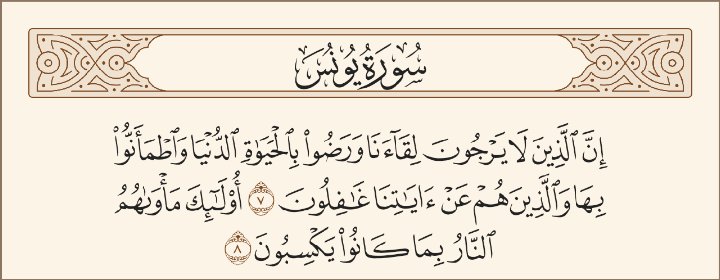 سُورَةُ يُونُسَ
إِنَّ ٱلَّذِينَ لَا يَرْجُونَ لِقَآءَنَا وَرَضُوا۟ بِٱلْحَيَوٰةِ ٱلدُّنْيَا وَٱطْمَأَنُّوا۟
بِهَا وَٱلَّذِينَ هُمْ عَنْ ءَايَـٰتِنَا غَـٰفِلُونَ ٧ أُو۟لَـٰٓئِكَ مَأْوَىٰهُمُ
ٱلنَّارُ بِمَا كَانُوا۟ يَكْسِبُونَ ٨